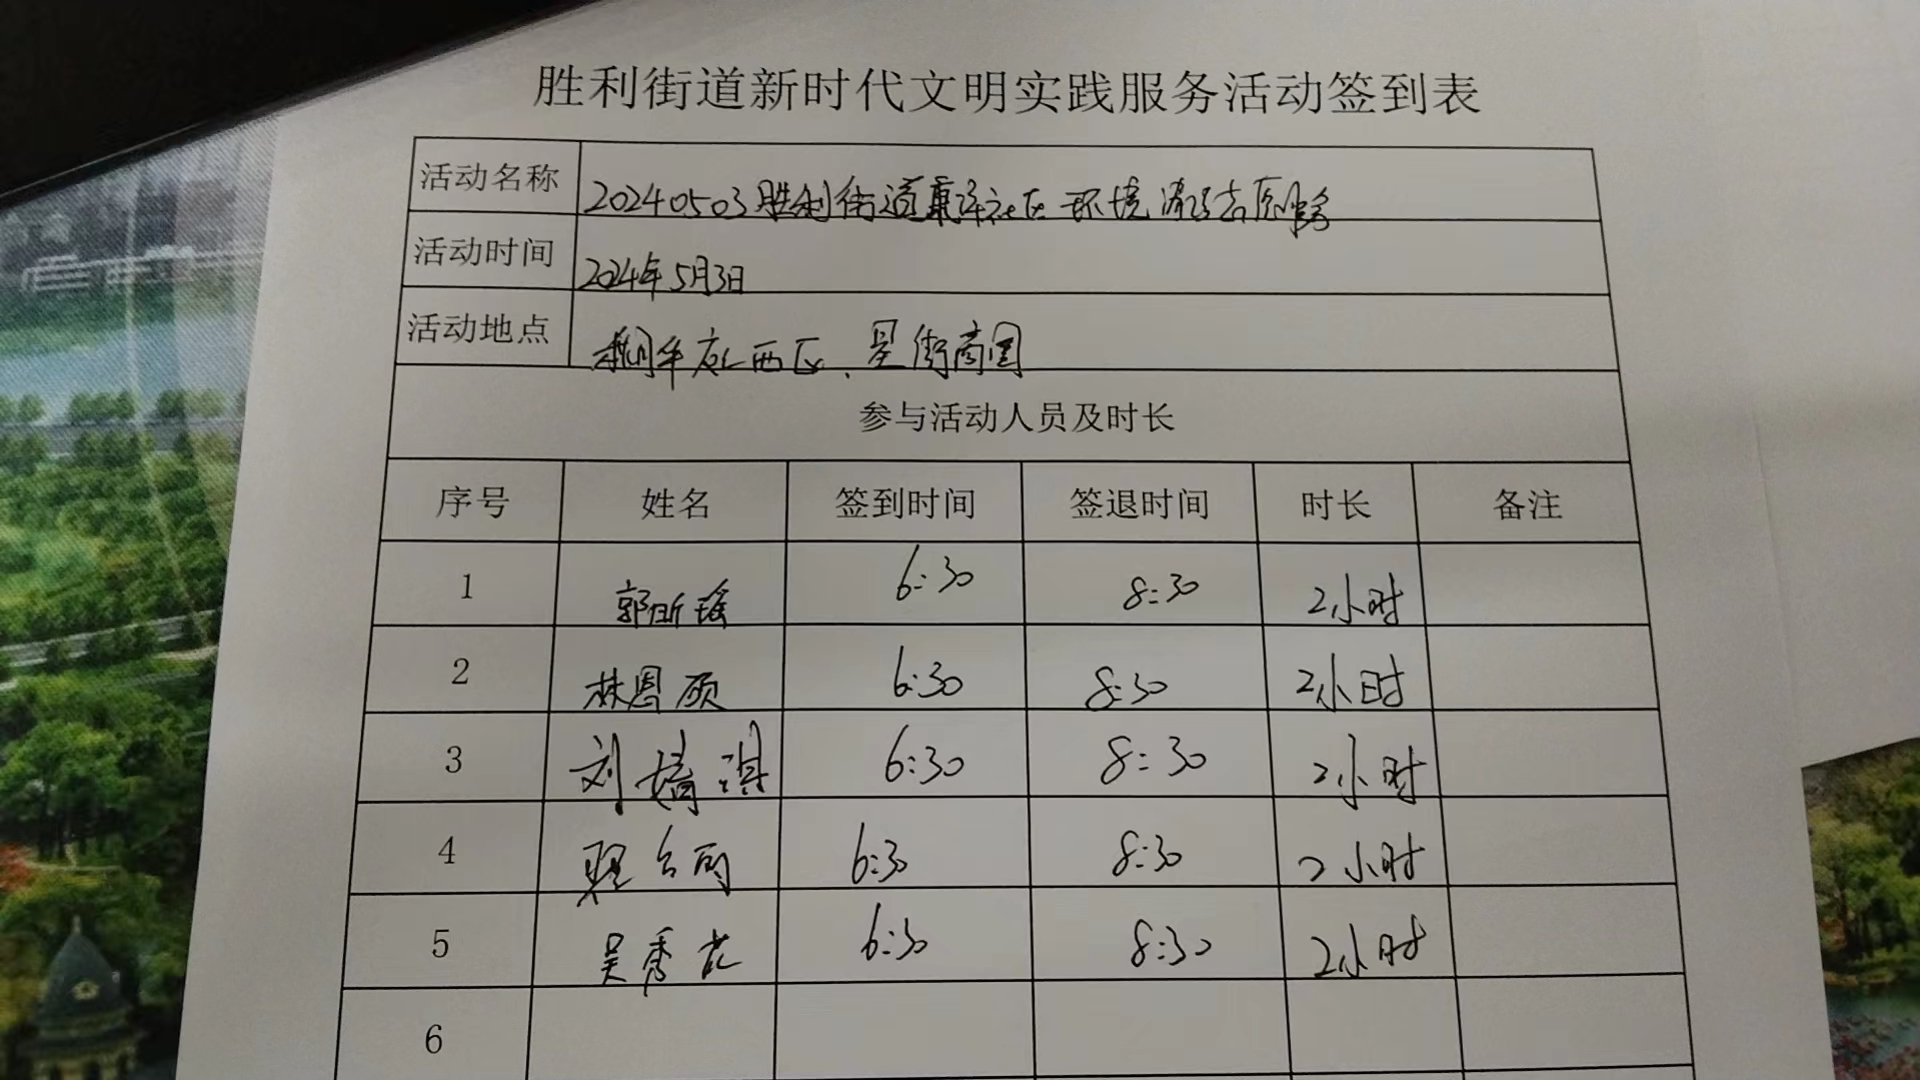 胜利街道新时代文明实践服务活动签到表
活动名称 20240503胜利街道 社区环境清洁志愿服务
活动时间 2024年5月3日
活动地点 西区、星街商圈
参与活动人员及时长
序号 姓名 签到时间 签退时间 时长 备注
1 郭昕瑶 6:30 8:30 2小时
2 林恩硕 6:30 8:30 2小时
3 刘 淇 6:30 8:30 2小时
4 6:30 8:30 2小时
5 吴秀花 6:30 8:30 2小时
6